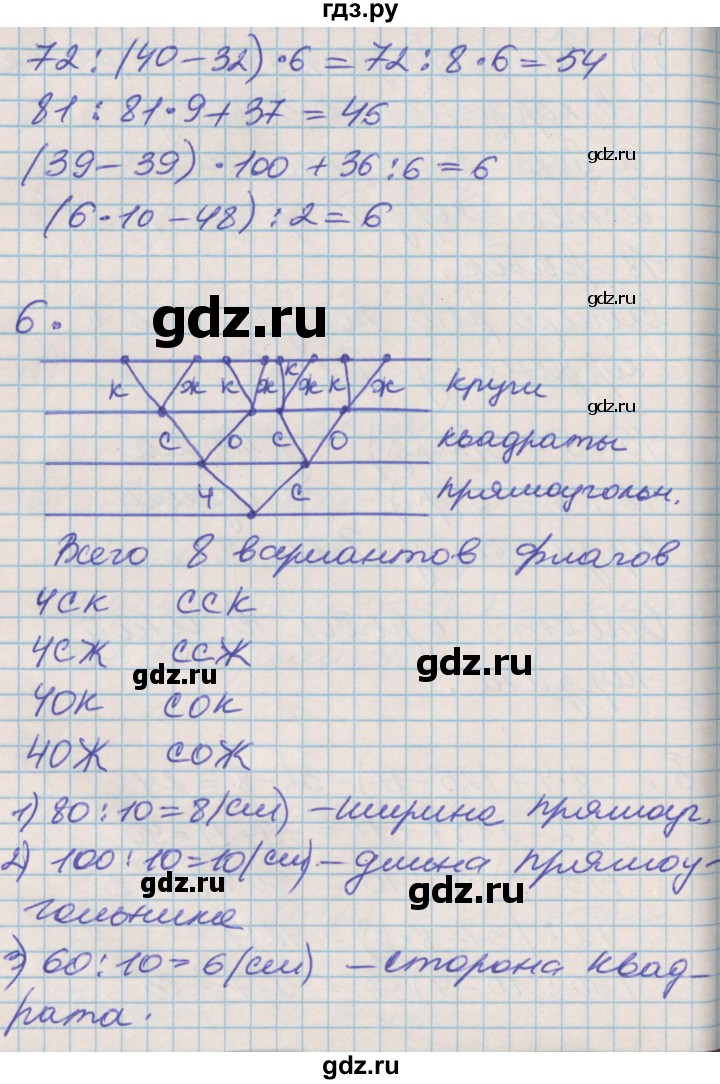 гдз.ру
72 : (40 - 32) · 6 = 72 : 8 · 6 = 54
81 : 81 · 9 + 37 = 45
gdz.ru
(39 - 39) · 100 + 36 : 6 = 6
(6 · 10 - 48) : 2 = 6
gdz.ru
6.
gdz.ru
к ж к ж к ж к ж круги
gdz.ru
с о с о квадраты
ч с прямоугольн.
Всего 8 вариантов флагов
чск сск
чсж ссж
gdz.ru
gdz.ru
чок сок
чож сож
1) 80 : 10 = 8 (см) – ширина прямоуг.
2) 100 : 10 = 10 (см) – длина прямоу-
gdz.ru
gdz.ru
гольника
3) 60 : 10 = 6 (см) – сторона квад-
рата.
gdz.ru